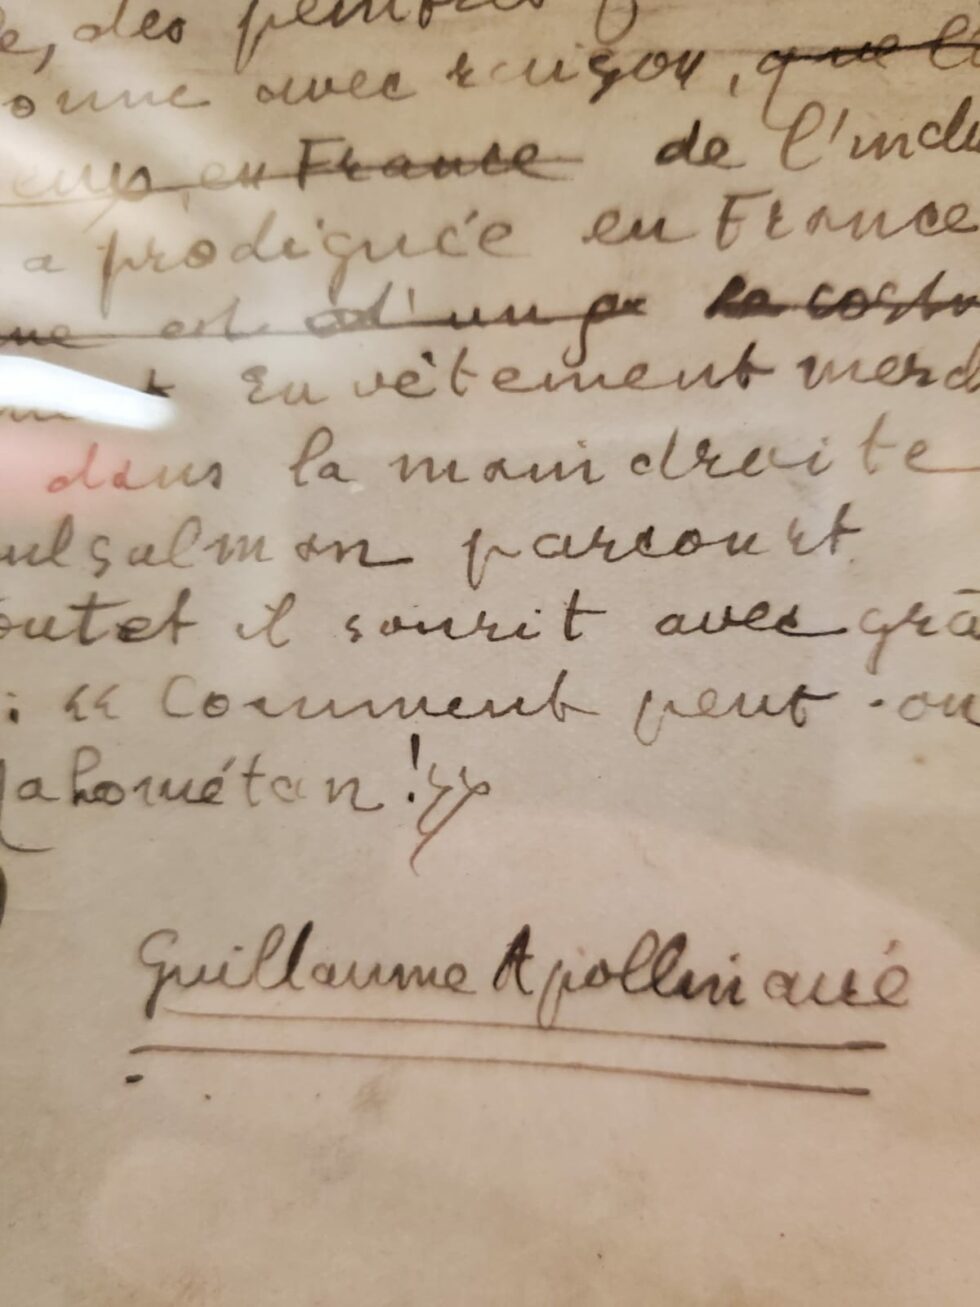 e, des peintres
onne avec raison, que l
en France de l'indu
a prodiguée en France
est d'un le costu
En vêtement merd
dans la main droite
ulsulman parcourt
outet il sourit avec grâ
: « Comment peut-on
Mahométan ! »
Guillaume Apollinaire